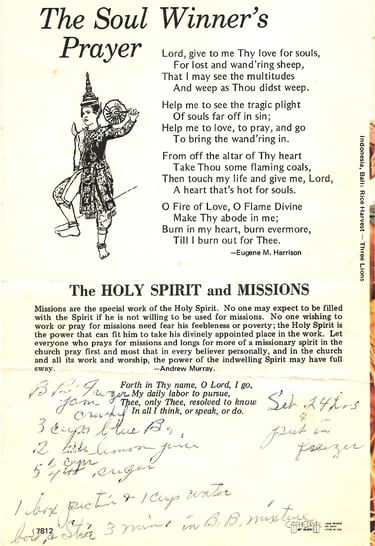 The Soul Winner's
Prayer
Lord, give to me Thy love for souls,
For lost and wand'ring sheep,
That I may see the multitudes
And weep as Thou didst weep.
Help me to see the tragic plight
Of souls far off in sin;
Help me to love, to pray, and go
To bring the wand'ring in.
From off the altar of Thy heart
Take Thou some flaming coals,
Then touch my life and give me, Lord,
A heart that's hot for souls.
O Fire of Love, O Flame Divine
Make Thy abode in me;
Burn in my heart, burn evermore,
Till I burn out for Thee.
—Eugene M. Harrison
Indonesia, Bali: Rice Harvest — Three Lions
The HOLY SPIRIT and MISSIONS
Missions are the special work of the Holy Spirit. No one may expect to be filled
with the Spirit if he is not willing to be used for missions. No one wishing
to work or pray for missions need fear his feebleness or poverty; the Holy Spirit is
the power that can fit him to take his divinely appointed place in the work. Let
everyone who prays for missions and longs for more of a missionary spirit in the
church pray first and most that in every believer personally, and in the church
and all its work and worship, the power of the indwelling Spirit may have full
sway. —Andrew Murray.
Forth in Thy name, O Lord, I go,
My daily labor to pursue,
Thee, only Thee, resolved to know
In all I think, or speak, or do.
B.B. Freezer
jam
crushed
3 cups blue B.,
2 lemon juice
5 1/4 cups sugar
Set 24 hrs
&
put in
freezer
1 box pectin & 1 cup water
boil & stir 3 min. in B.B. mixture
7812
CATHEDRAL